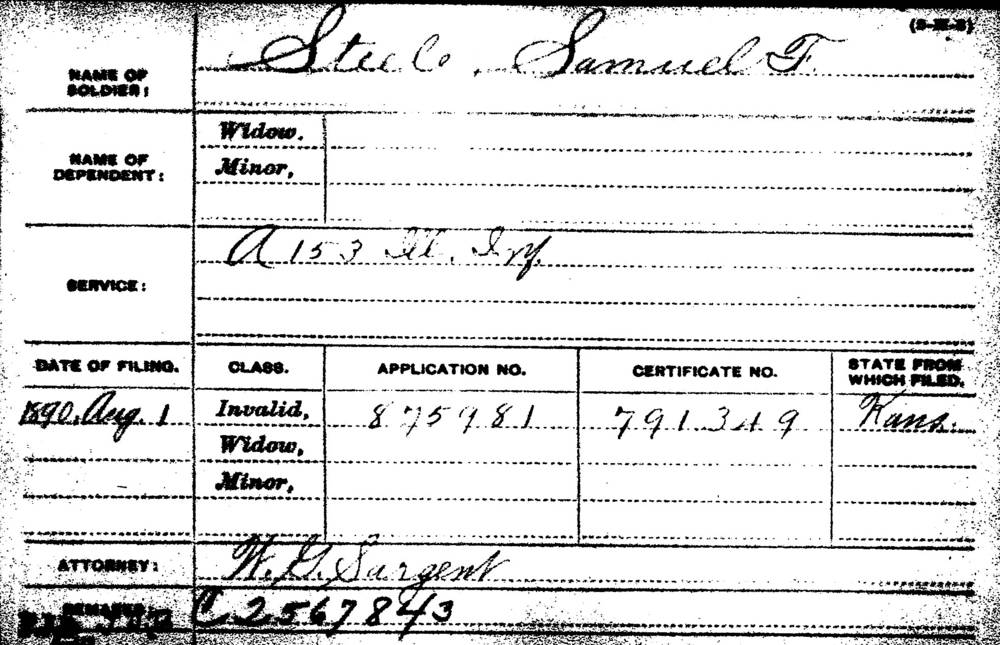 (3-III-3)
NAME OF SOLDIER: Steele, Samuel F.
NAME OF DEPENDENT: Widow.
Minor,
SERVICE: A 153 Ill. Inf.
DATE OF FILING. CLASS. APPLICATION NO. CERTIFICATE NO. STATE FROM WHICH FILED.
1890, Aug. 1 Invalid, 875981 791349 Kans.
Widow,
Minor,
ATTORNEY: W. G. Sargent
REMARKS: C 2567843